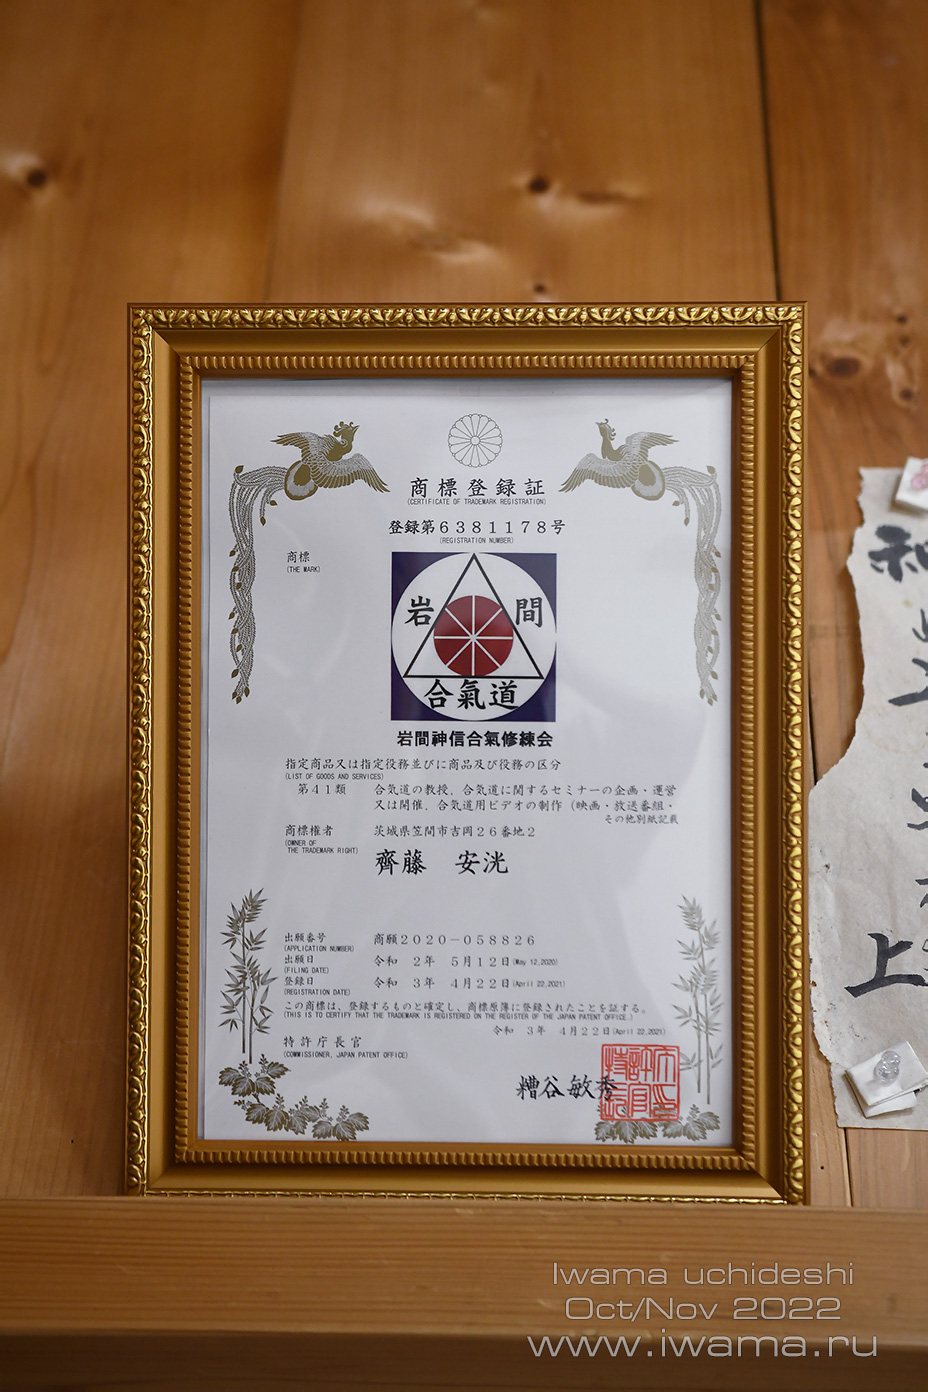 商標登録証
(CERTIFICATE OF TRADEMARK REGISTRATION)
登録第6381178号
(REGISTRATION NUMBER)
商標
(THE MARK)
岩 間
合氣道
岩間神信合氣修練会
指定商品又は指定役務並びに商品及び役務の区分
(LIST OF GOODS AND SERVICES)
第41類 合気道の教授，合気道に関するセミナーの企画・運営
又は開催，合気道用ビデオの制作（映画・放送番組・
その他別紙記載
商標権者 茨城県笠間市吉岡26番地2
(OWNER OF
THE TRADEMARK RIGHT)
齊藤 安洸
出願番号 商願2020-058826
(APPLICATION NUMBER)
出願日 令和 2年 5月12日(May 12,2020)
(FILING DATE)
登録日 令和 3年 4月22日(April 22,2021)
(REGISTRATION DATE)
この商標は、登録するものと確定し、商標原簿に登録されたことを証する。
(THIS IS TO CERTIFY THAT THE TRADEMARK IS REGISTERED ON THE REGISTER OF THE JAPAN PATENT OFFICE.)
令和 3年 4月22日(April 22,2021)
特許庁長官
(COMMISSIONER, JAPAN PATENT OFFICE)
糟谷敏秀
上
Iwama uchideshi
Oct/Nov 2022
www.iwama.ru